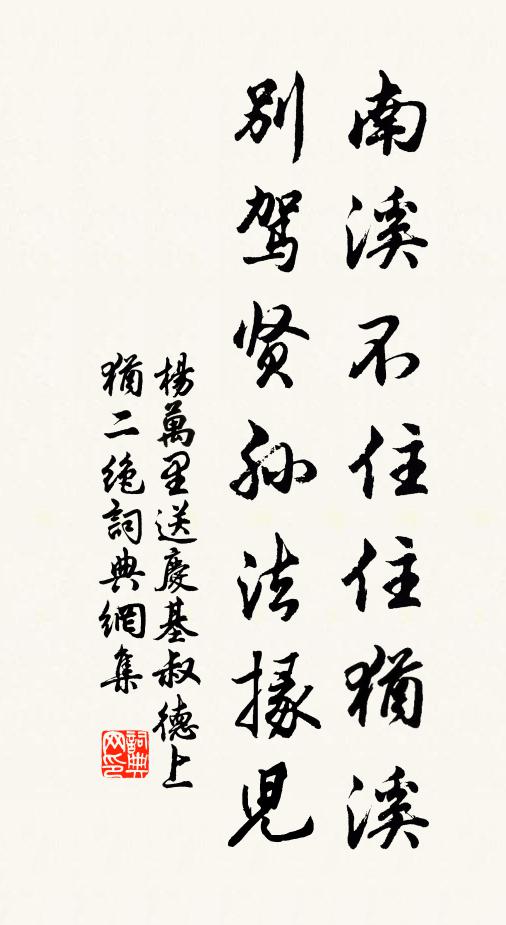 南溪不住住猶溪
别驾贤孙法掾児
楊萬里送慶基叔德上
猶二绝詞典網集
詞典网印